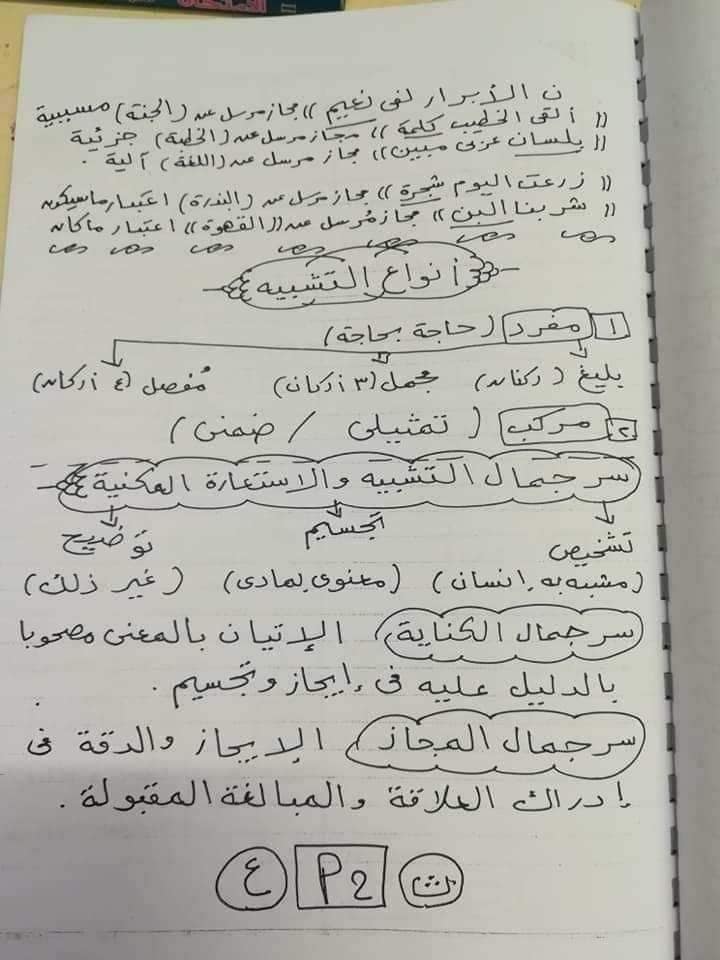 ن الأبرار لفى نعيم)) مجاز مرسل عن (الجنة) مسببية
(( ألقى الخطيب كلمة)) مجاز مرسل عن (الخطبة) جزئية
(( بلسان عربى مبين)) مجاز مرسل عن (اللغة) آلية.
(( زرعت اليوم شجرة)) مجاز مرسل عن (البذرة) اعتبار ماسيكون
(( شربنا البن)) مجاز مُرسل عن ((القهوة)) اعتبار ماكان
أنواع التشبيه
١ مفرد (حاجة بحاجة)
بليغ (ركنان) مجمل (٣ أركان) مُفصل (٤ أركان)
٢. مركب (تمثيلى / ضمنى)
سر جمال التشبيه والاستعارة المكنية
تشخيص تجسيم توضيح
(مشبه به إنسان) (معنوى بمادى) (غير ذلك)
سر جمال الكناية الإتيان بالمعنى مصحوبا
بالدليل عليه فى إيجاز وتجسيم.
سر جمال المجاز الإيجاز والدقة فى
إدراك العلاقة والمبالغة المقبولة.
ث P2 ع